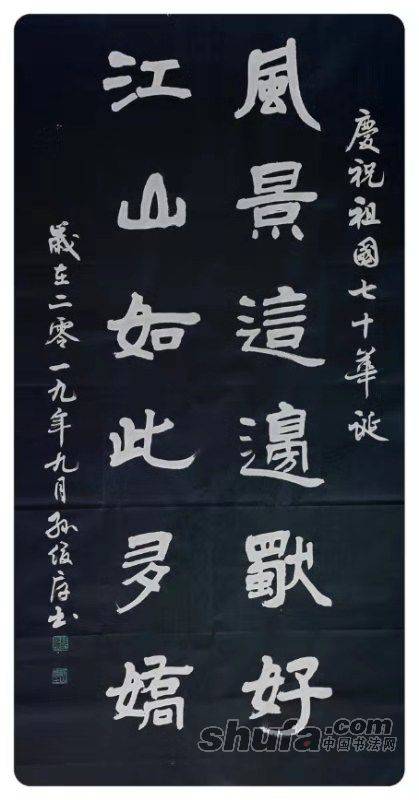 慶祝祖國七十華诞
風景這邊獨好
江山如此多嬌
歲在二零一九年九月孙俊书
shufa.com
中国书法网